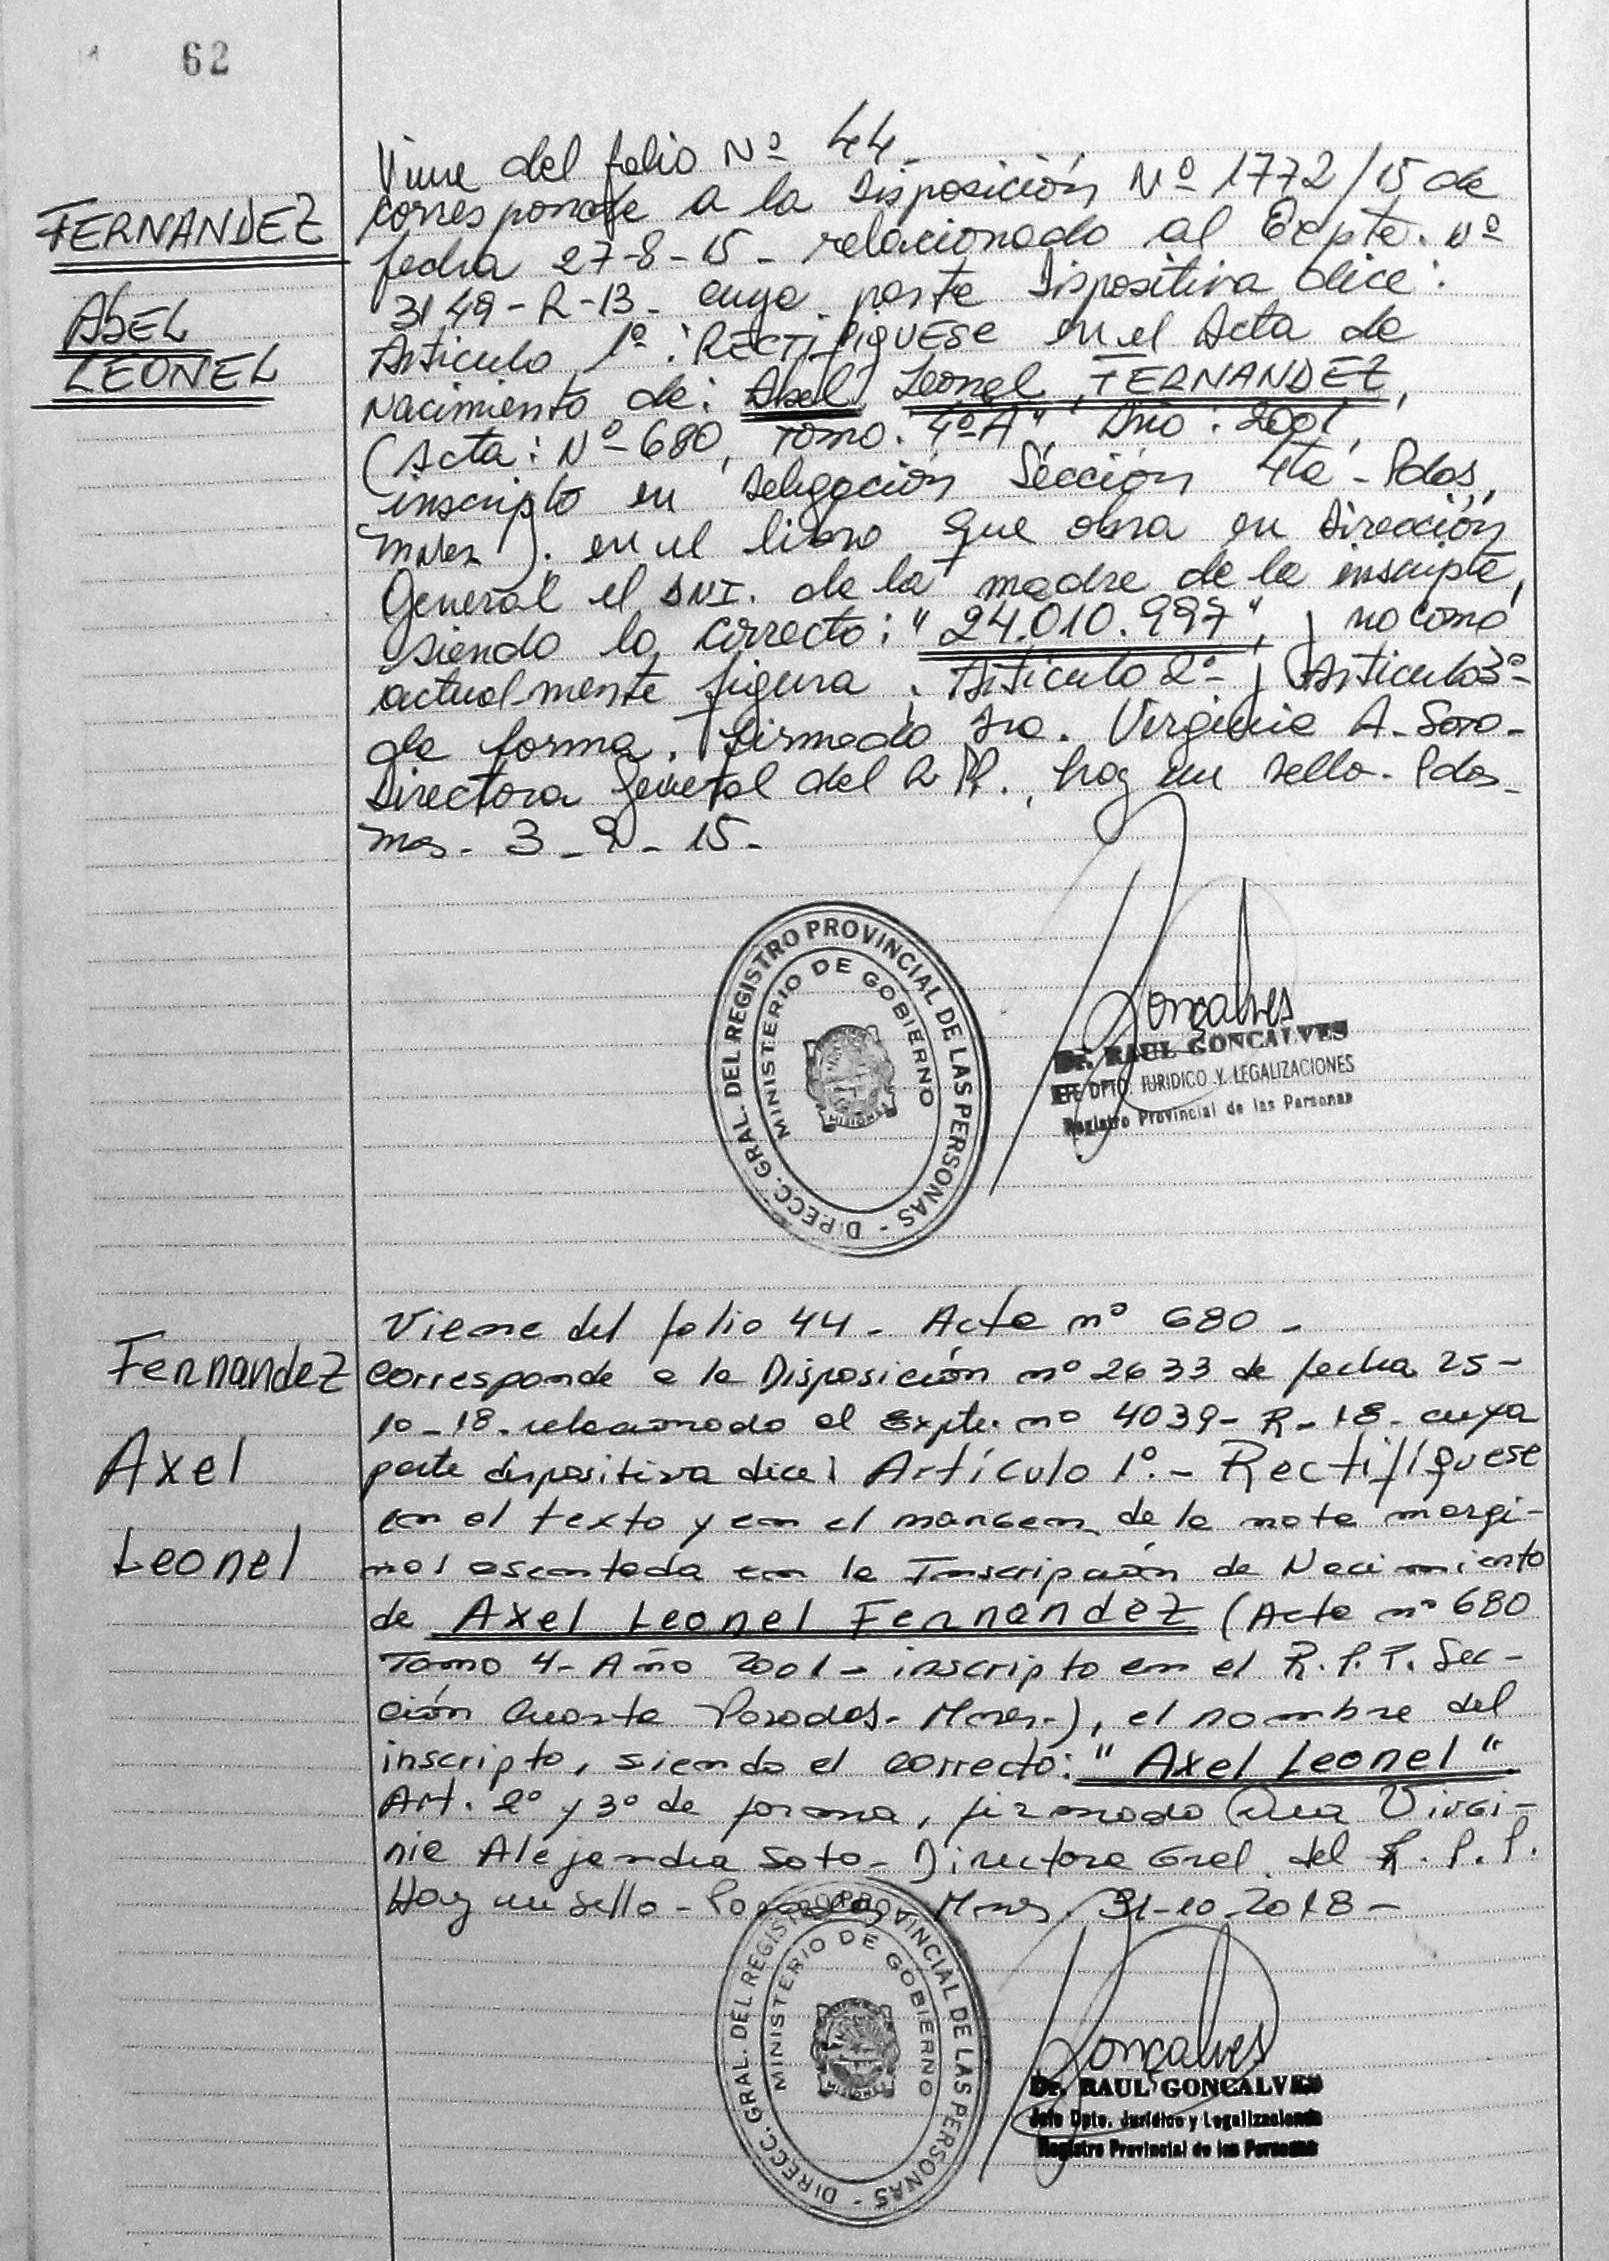 62
FERNANDEZ
ABEL
LEONEL
Viene del folio Nº 44-
corresponde a la Disposición Nº 1772/15 de
fecha 27-8-15- relacionado al Expte. Nº
3149-R-13- cuya parte Dispositiva dice:
Articulo 1º: RECTIFIQUESE en el Acta de
Nacimiento de: Abel Leonel FERNANDEZ,
(Acta: Nº 680, Tomo: 4º"A", Año: 2001,
inscripto en Delegación Sección 4ta - Pdas,
Mnes). en el libro que obra en Dirección
General el DNI. de la madre de la inscripta,
siendo lo correcto: "24.010.997", y no como
actualmente figura. Articulo 2º y Articulo 3º
de forma. Firmado Dra. Virginia A. Soto-
Directora General del R.PP., hay un sello- Pdas-
Mns- 3-9-15-
DIRECC. GRAL. DEL REGISTRO PROVINCIAL DE LAS PERSONAS -
MINISTERIO DE GOBIERNO
MISIONES
Gonçalves
Dr. RAUL GONCALVES
JEFE DPTO. JURIDICO Y LEGALIZACIONES
Registro Provincial de las Personas
Fernandez
Axel
Leonel
Viene del folio 44- Acta nº 680-
corresponde a la Disposición nº 2633 de fecha 25-
10-18. relacionado al Expte. nº 4039- R-18- cuya
parte dispositiva dice: Artículo 1º.- Rectifíquese
en el texto y en el margen de la nota margi-
nal asentada en la Inscripción de Nacimiento
de Axel Leonel Fernandez (Acta nº 680
Tomo 4- Año 2001- inscripto en el R.P.P. Sec-
ción Cuarta Posadas- Mnes-), el nombre del
inscripto, siendo el correcto: "Axel Leonel"
Art. 2º y 3º de forma, firmado Dra Virgi-
nia Alejandra Soto- Directora Gral. del R.P.P.
Hay un sello- Posadas, Mnes, 31-10-2018-
DIRECC. GRAL. DEL REGISTRO PROVINCIAL DE LAS PERSONAS -
MINISTERIO DE GOBIERNO
MISIONES
Gonçalves
Dr. RAUL GONCALVES
Jefe Dpto. Jurídico y Legalizaciones
Registro Provincial de las Personas